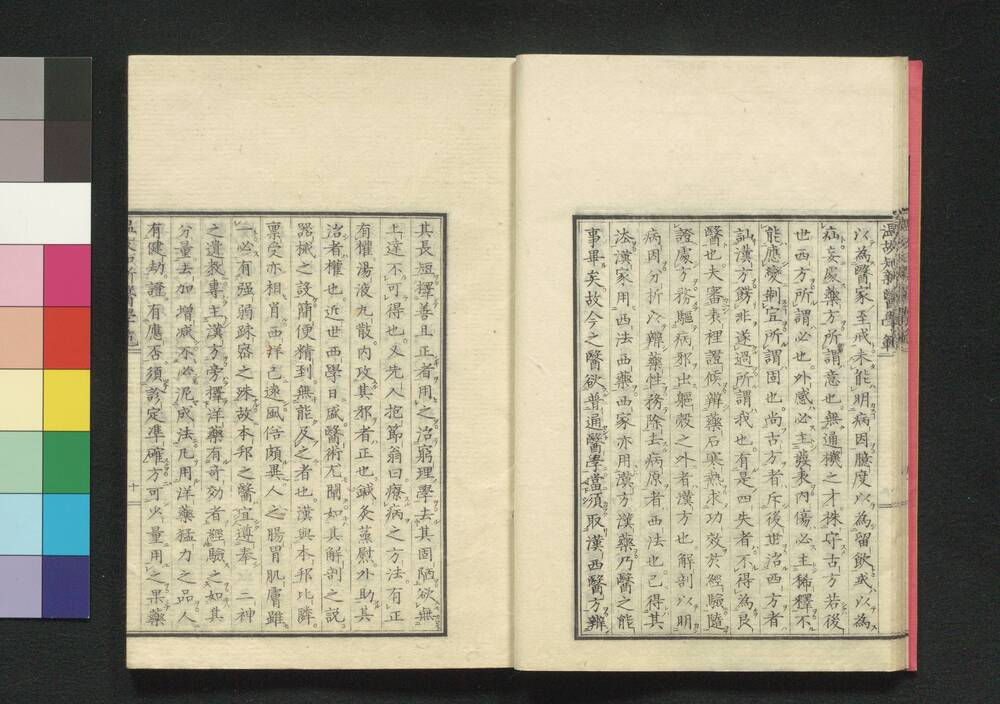 以為醫家至戒未能明病因臆度以為留飲或以為
病妄處藥方所謂意也無通機之才株守古方若後
世西方所謂必也外感必主發表内傷必主稀釋不
能應變制宜所謂固也尚古方者斥後世治西方者
訕漢方饒非遂過所謂我也有是四失者不得為良
醫也夫審表裡證候辨藥石寒熱求功效於經驗隨
證處方務驅病邪出軀殼之外者漢方也解剖以明
病因分折以辨藥性務除去病原者西法也已得其
法漢家用西法西藥西家亦用漢方漢藥乃醫之能
事畢矣故今之醫欲普通醫學當須取漢西醫方辨
其長短擇善且正者用之治窮理學去其固陋欲無
上達不可得也又先人抱節翁曰療病之方法有正
有權湯液丸散内攻其邪者正也鍼灸蒸慰外助其
治者權也近世西學日盛醫術尤闢如其解剖之説
器械之設簡便精到無能及之者也漢與本邦比隣
禀受亦相肖西洋已遠風俗頗異人之腸胃肌膚雖
一必有强弱疎密之殊故本邦之醫宜遵奉二神
之遺教專主漢方旁擇洋藥有奇効者經驗之如其
分量去加增減不必泥成法凡用洋藥猛力之品人
有健劫證有應否須診定準確方可少量用之果藥
十